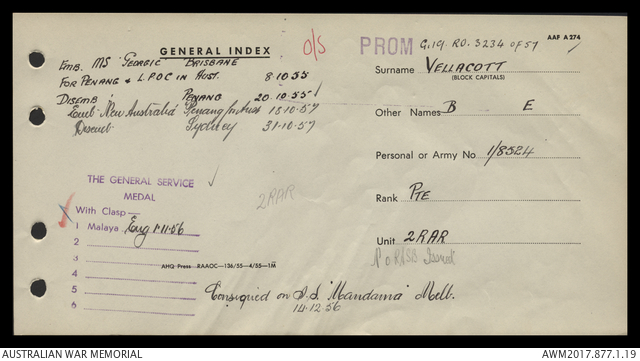 GENERAL INDEX
O/S
EMB. MS GEORGIC BRISBANE
FOR PENANG & L.P.O.C IN AUST. 8.10.55
DISEMB. PENANG 20.10.55
Emb. New Australia Penang for Aust 18.10.57
Disemb. Sydney 31.10.57
THE GENERAL SERVICE
MEDAL
With Clasp
1 Malaya Eng 1.11.56
2
3
4
5
6
2RAR
AHQ Press RAAOC—136/55—4/55—1M
Consigned on S.S. "Mandama" Melb.
14.12.56
PROM G.19. RO. 3234 OF 57
AAF A 274
Surname VELLACOTT
(BLOCK CAPITALS)
Other Names B E
Personal or Army No 1/8524
Rank PTE
Unit 2RAR
Issued
AUSTRALIAN WAR MEMORIAL
AWM2017.877.1.19